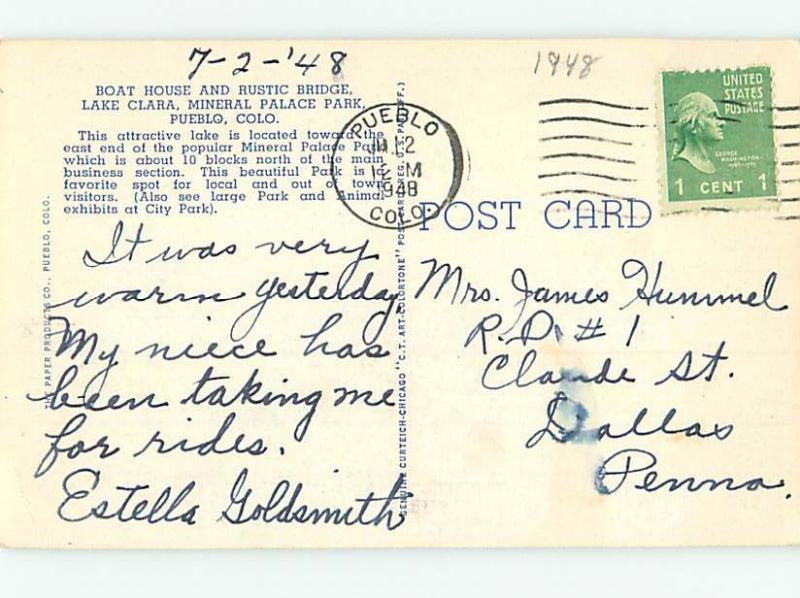 7-2-'48
1948
BOAT HOUSE AND RUSTIC BRIDGE,
LAKE CLARA, MINERAL PALACE PARK,
PUEBLO, COLO.
This attractive lake is located toward the
east end of the popular Mineral Palace Park
which is about 10 blocks north of the main
business section. This beautiful Park is a
favorite spot for local and out of town
visitors. (Also see large Park and Animal
exhibits at City Park).
PUEBLO
2
12 M
1948
COLO.
UNITED
STATES
POSTAGE
GEORGE
WASHINGTON
1 CENT 1
POST CARD
It was very
warm yesterday,
My niece has
been taking me
for rides.
Estella Goldsmith
Mrs. James Hummel
R.D. # 1
Claude St.
Dallas
Penna.
PAPER PRODUCTS CO., PUEBLO, COLO.
GENUINE CURTEICH-CHICAGO "C.T. ART-COLORTONE" POST CARD (REG. U.S. PAT. OFF.)